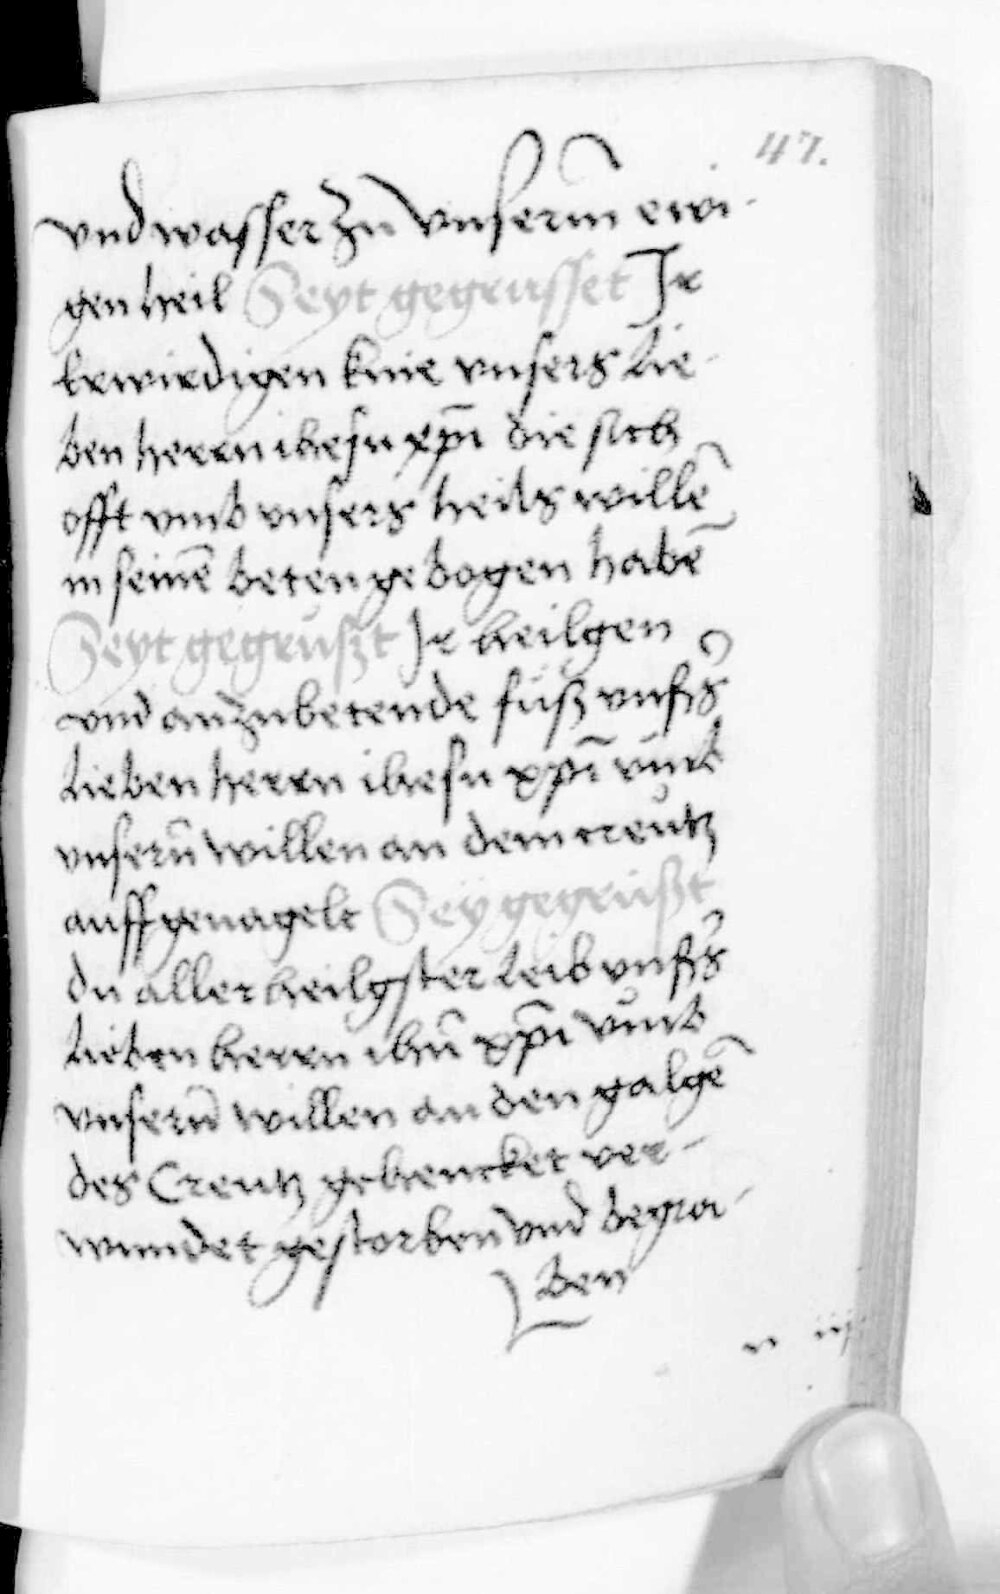 47.
vnd wasser zu vnserm ewi-
gen heil Seyt gegrusset Jr
erwirdigen knie vnsers lie-
ben herrn ihesu xp̄i die sich
offt vmb vnsers heils willē
in seinē beten gebogen habē
Seyt gegrüszt Jr heilgen
vnd anzubetende füsz vnsers
lieben herrn ihesu xp̄i vmb
vnserñ willen an dem creutz
auffgenagelt Sey gegrüszt
du aller heilgster leib vnsers
lieben herrn ihū xp̄i vmb
vnserñ willen an den galgē
des Creutz gehencket ver-
wundet gestorben vnd begra-
ben
n iij